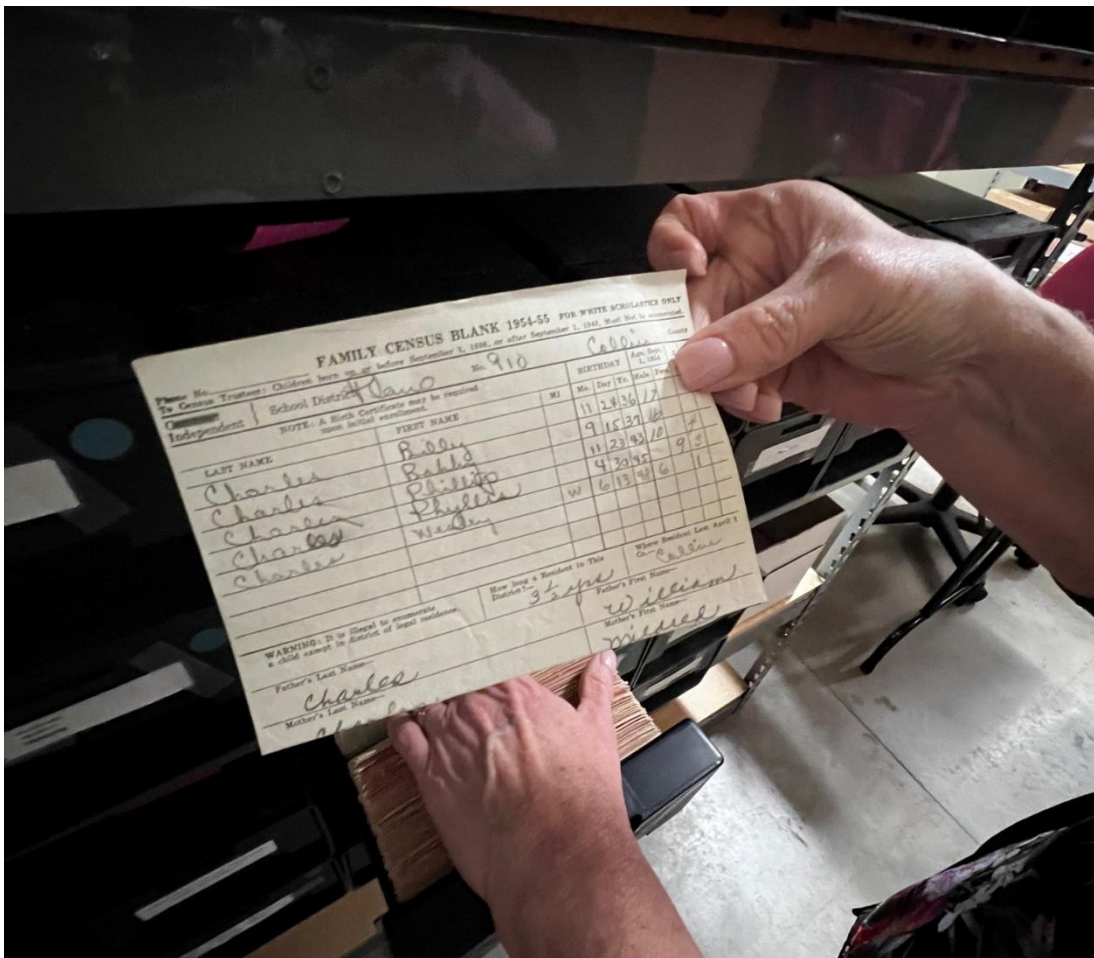 FAMILY CENSUS BLANK 1954-55 FOR WHITE SCHOLASTICS ONLY
To Census Trustees: Children born on or before September 1, 1936, or after September 1, 1948, Must Not be enumerated.
Phone No. No. 910 Collin County
Independent School District Plano
NOTE: A Birth Certificate may be required
upon initial enrollment.
BIRTHDAY Age, Sept. 1, 1954
LAST NAME FIRST NAME MI Mo. Day Yr. Male
Charles Billy 11 24 36 17
Charles Bobby 9 15 37 16
Charles Phillip 11 23 43 10 4
Charles Phyllis 4 30 45 9 3
Charles Wesley W 6 13 48 6 1
WARNING: It is illegal to enumerate
a child except in district of legal residence.
How long a Resident in This
District?— 3½ yrs
Where Resident Last April 1
Co.— Collin
Father's Last Name—
Charles
Father's First Name—
William
Mother's Last Name—
Mother's First Name—
Mildred